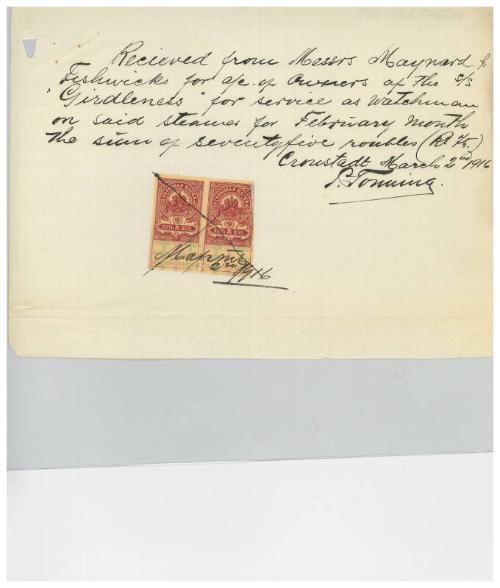 Recieved from Messrs Maynard &
Fishwicks for a/c. of Owners of the s/s
"Girdleness" for service as watchman
on said steamer for February month
the sum of seventyfive roubles (Rs 75.)
Cronstadt March 2nd 1916
Марта
2nd 1916